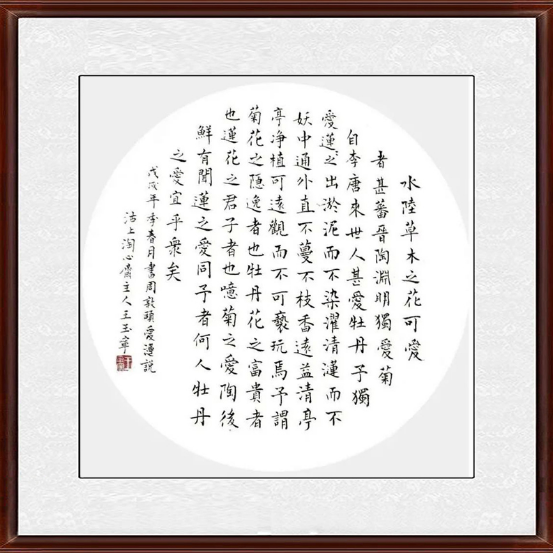 水陸草木之花可愛
者甚蕃晉陶淵明獨愛菊
自李唐來世人甚愛牡丹予獨
愛蓮之出淤泥而不染濯清漣而不
妖中通外直不蔓不枝香遠益清亭
亭净植可遠觀而不可褻玩焉予謂
菊花之隱逸者也牡丹花之富貴者
也蓮花之君子者也噫菊之愛陶後
鮮有聞蓮之愛同予者何人牡丹
之愛宜乎衆矣
戊戌年季春月書周敦頤愛蓮説
沽上淘心齋主人王玉寧